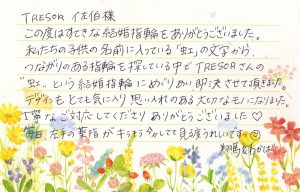 TRESOR 佐伯様
この度はすてきな結婚指輪をありがとうございました。
私たちの子供の名前に入っている「虹」の文字から、
つながりのある指輪を探している中でTRESORさんの
"虹"という結婚指輪にめぐりあい即決させて頂きました。
デザインもとても気に入り思い入れのある大切なモノになりました。
丁寧なご対応してくださりありがとうございました♡
毎日、左手の薬指がキラキラしてて見る度うれしいです☺